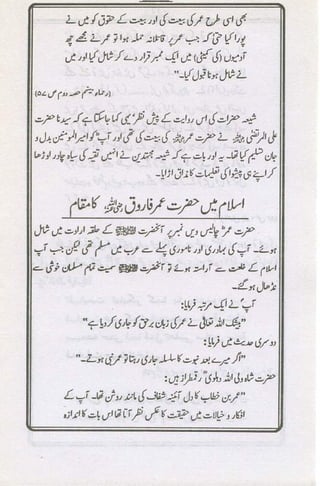 بھی اسی طرح عمر کی بیعت کی اور بیعت کے حقوق کو میں نے
پورا کیا حتیٰ کہ جب عمر پر قاتلانہ حملہ ہوا تو عمر نے مجھے چھ
آدمیوں (کی کمیٹی) میں ایک ممبر قرار دے کر شامل کیا اور میں
نے شامل ہونا قبول کیا۔"
(رحماء بینہم حصہ دوم ص ۵۷)
شیعہ حضرات کی اس روایت کے پیش نظر یہی کہا جا سکتا ہے کہ سیدنا حضرت
علی المرتضیٰ نے حضرت عمر کی بیعت کی تھی اور آپ کو امیر المومنین بدل و
جان تسلیم کیا تھا۔ یہ اور بات ہے کہ شیعہ مجتہدین نے انہیں تقیہ کی سیاہ چادر اوڑھا
کر اپنے ہی پیشوا کی تعلیمات کا مذاق اڑایا۔
اسلام میں حضرت عمر فاروق رضی اللہ عنہ کا مقام
حضرت عمرؓ چالیس ویں نمبر پر آنحضرت ﷺ کے حلقہ ارادت میں شامل
ہوئے۔ آپ کی بہادری اور ناموری پہلے سے عرب میں مسلم تھی لیکن جب آپ
اسلام کے خلعت سے آراستہ ہوئے تو آنحضرت ﷺ سمیت تمام مسلمان خوشی سے
نڈھال ہو گئے۔
آپؐ نے ایک مرتبہ فرمایا:
"بیشک اللہ تعالیٰ نے عمر کی زبان پر حق کو جاری کر دیا ہے"
دوسری حدیث میں فرمایا:
"اگر میرے بعد نبوت کا سلسلہ جاری رہتا تو عمر نبی ہوتے۔"
حضرت شاہ ولی اللہ دہلویؒ رقمطراز ہیں:
"عمر بن خطاب کا دل آئینہ شفاف کی مانند روشن تھا۔ آپ کے
افکار و خیالات میں حقیقت کا عکس نظر آتا تھا اس بات کا اندازہ